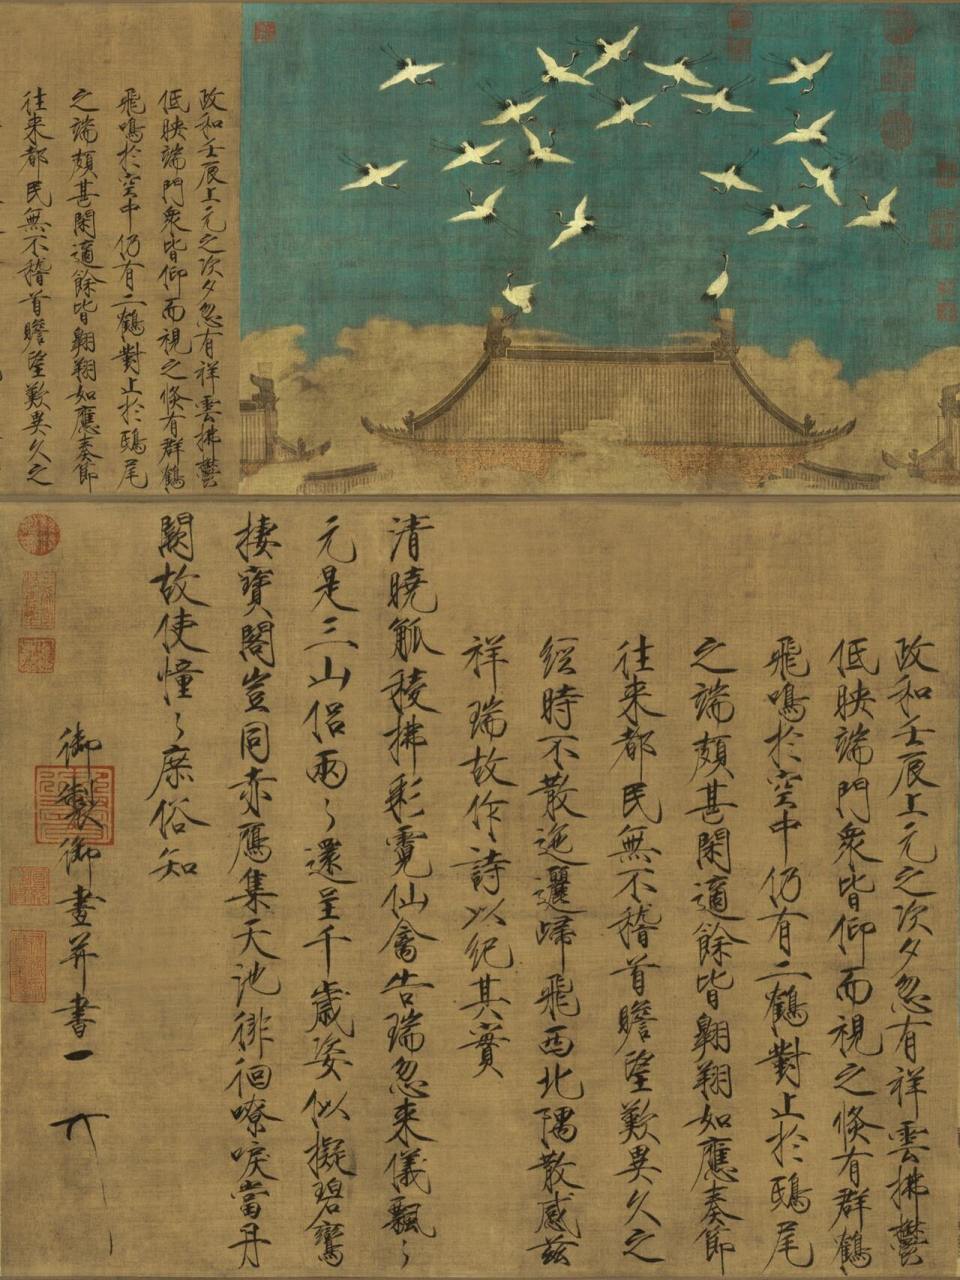 政和壬辰上元之次夕忽有祥雲拂鬱
低映端門衆皆仰而視之倐有群鶴
飛鳴於空中仍有二鶴對止於鴟尾
之端頗甚閑適餘皆翱翔如應奏節
往来都民無不稽首瞻望歎異久之
政和壬辰上元之次夕忽有祥雲拂鬱
低映端門衆皆仰而視之倐有群鶴
飛鳴於空中仍有二鶴對止於鴟尾
之端頗甚閑適餘皆翱翔如應奏節
往来都民無不稽首瞻望歎異久之
經時不散迤邐歸飛西北隅散感兹
祥瑞故作詩以紀其實
清曉觚稜拂彩霓仙禽告瑞忽来儀飄〻
元是三山侣兩〻還呈千歲姿似擬碧鸞
棲寳閣豈同赤鴈集天池徘徊嘹唳當丹
闕故使憧〻庶俗知
御製御畫并書